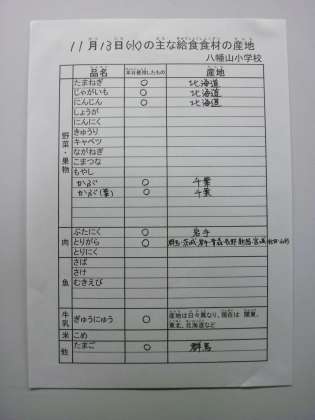 11月13日(水)の主な給食食材の産地
八幡山小学校
品名 本日使用したもの 産地
野菜・果物
たまねぎ ○ 北海道
じゃがいも ○ 北海道
にんじん ○ 北海道
しょうが
にんにく
きゅうり
キャベツ
ながねぎ
こまつな
もやし
かぶ ○ 千葉
かぶ(葉) ○ 千葉
肉
ぶたにく ○ 岩手
とりがら ○ 群馬・茨城・岩手・青森・長野・新潟・宮城・秋田・山形
とりにく
魚
さば
さけ
むきえび
牛乳 ぎゅうにゅう ○ 産地は日々異なり、現在は 関東、
東北、北海道など
米 こめ
他 たまご ○ 群馬